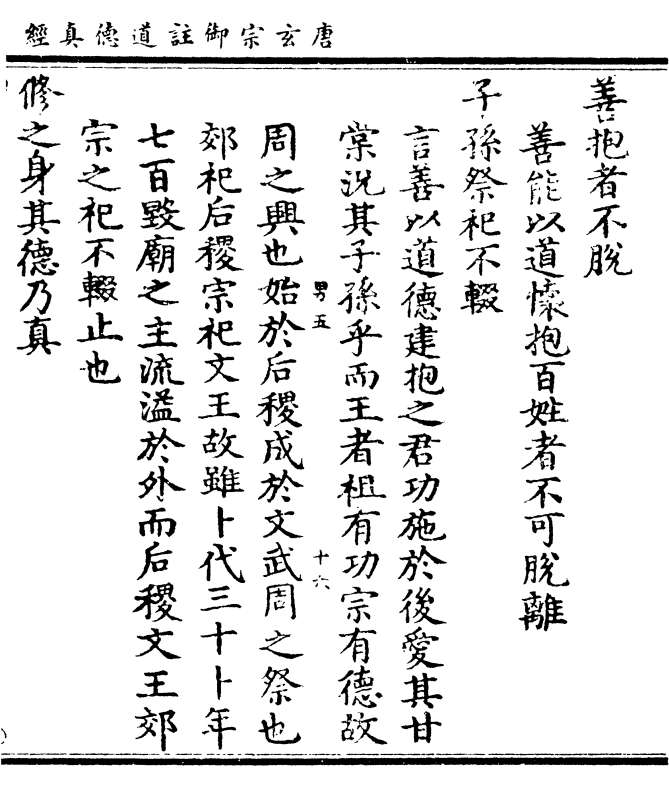 唐玄宗御註道德真經
善抱者不脫
善能以道懷抱百姓者不可脫離
子孫祭祀不輟
言善以道德建抱之君功施於後愛其甘
棠況其子孫乎而王者祖有功宗有德故
男五
十六
周之興也始於后稷成於文武周之祭也
郊祀后稷宗祀文王故雖卜代三十卜年
七百毀廟之主流溢於外而后稷文王郊
宗之祀不輟止也
修之身其德乃真